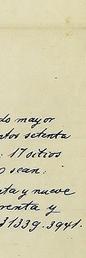 do mayor
ntos setenta
17 sitios
o sean:
nta y nueve
renta y
31339.3941.